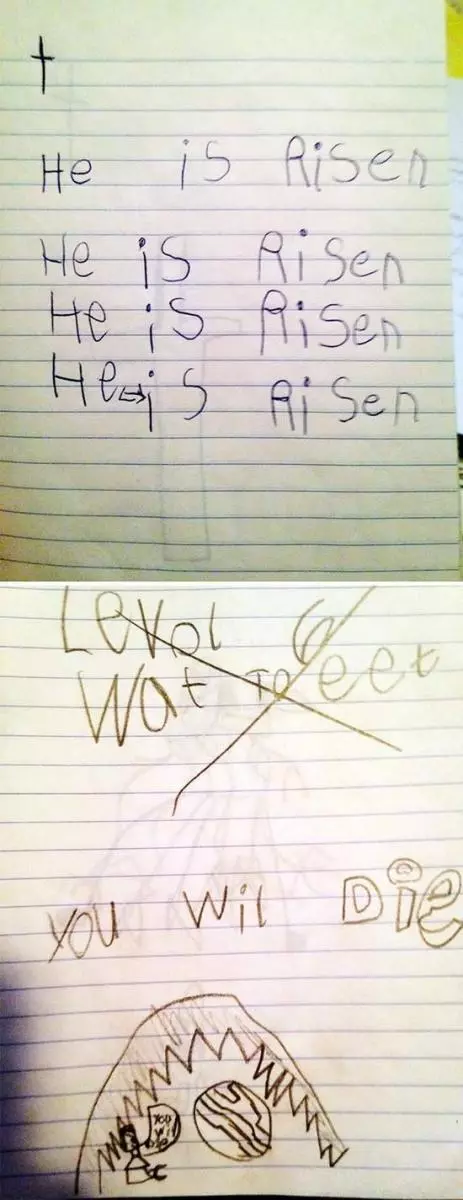 He is Risen
He is Risen
He is Risen
He is Risen
Levol 6
Wat to eet
you wil Die
You
wil
Die